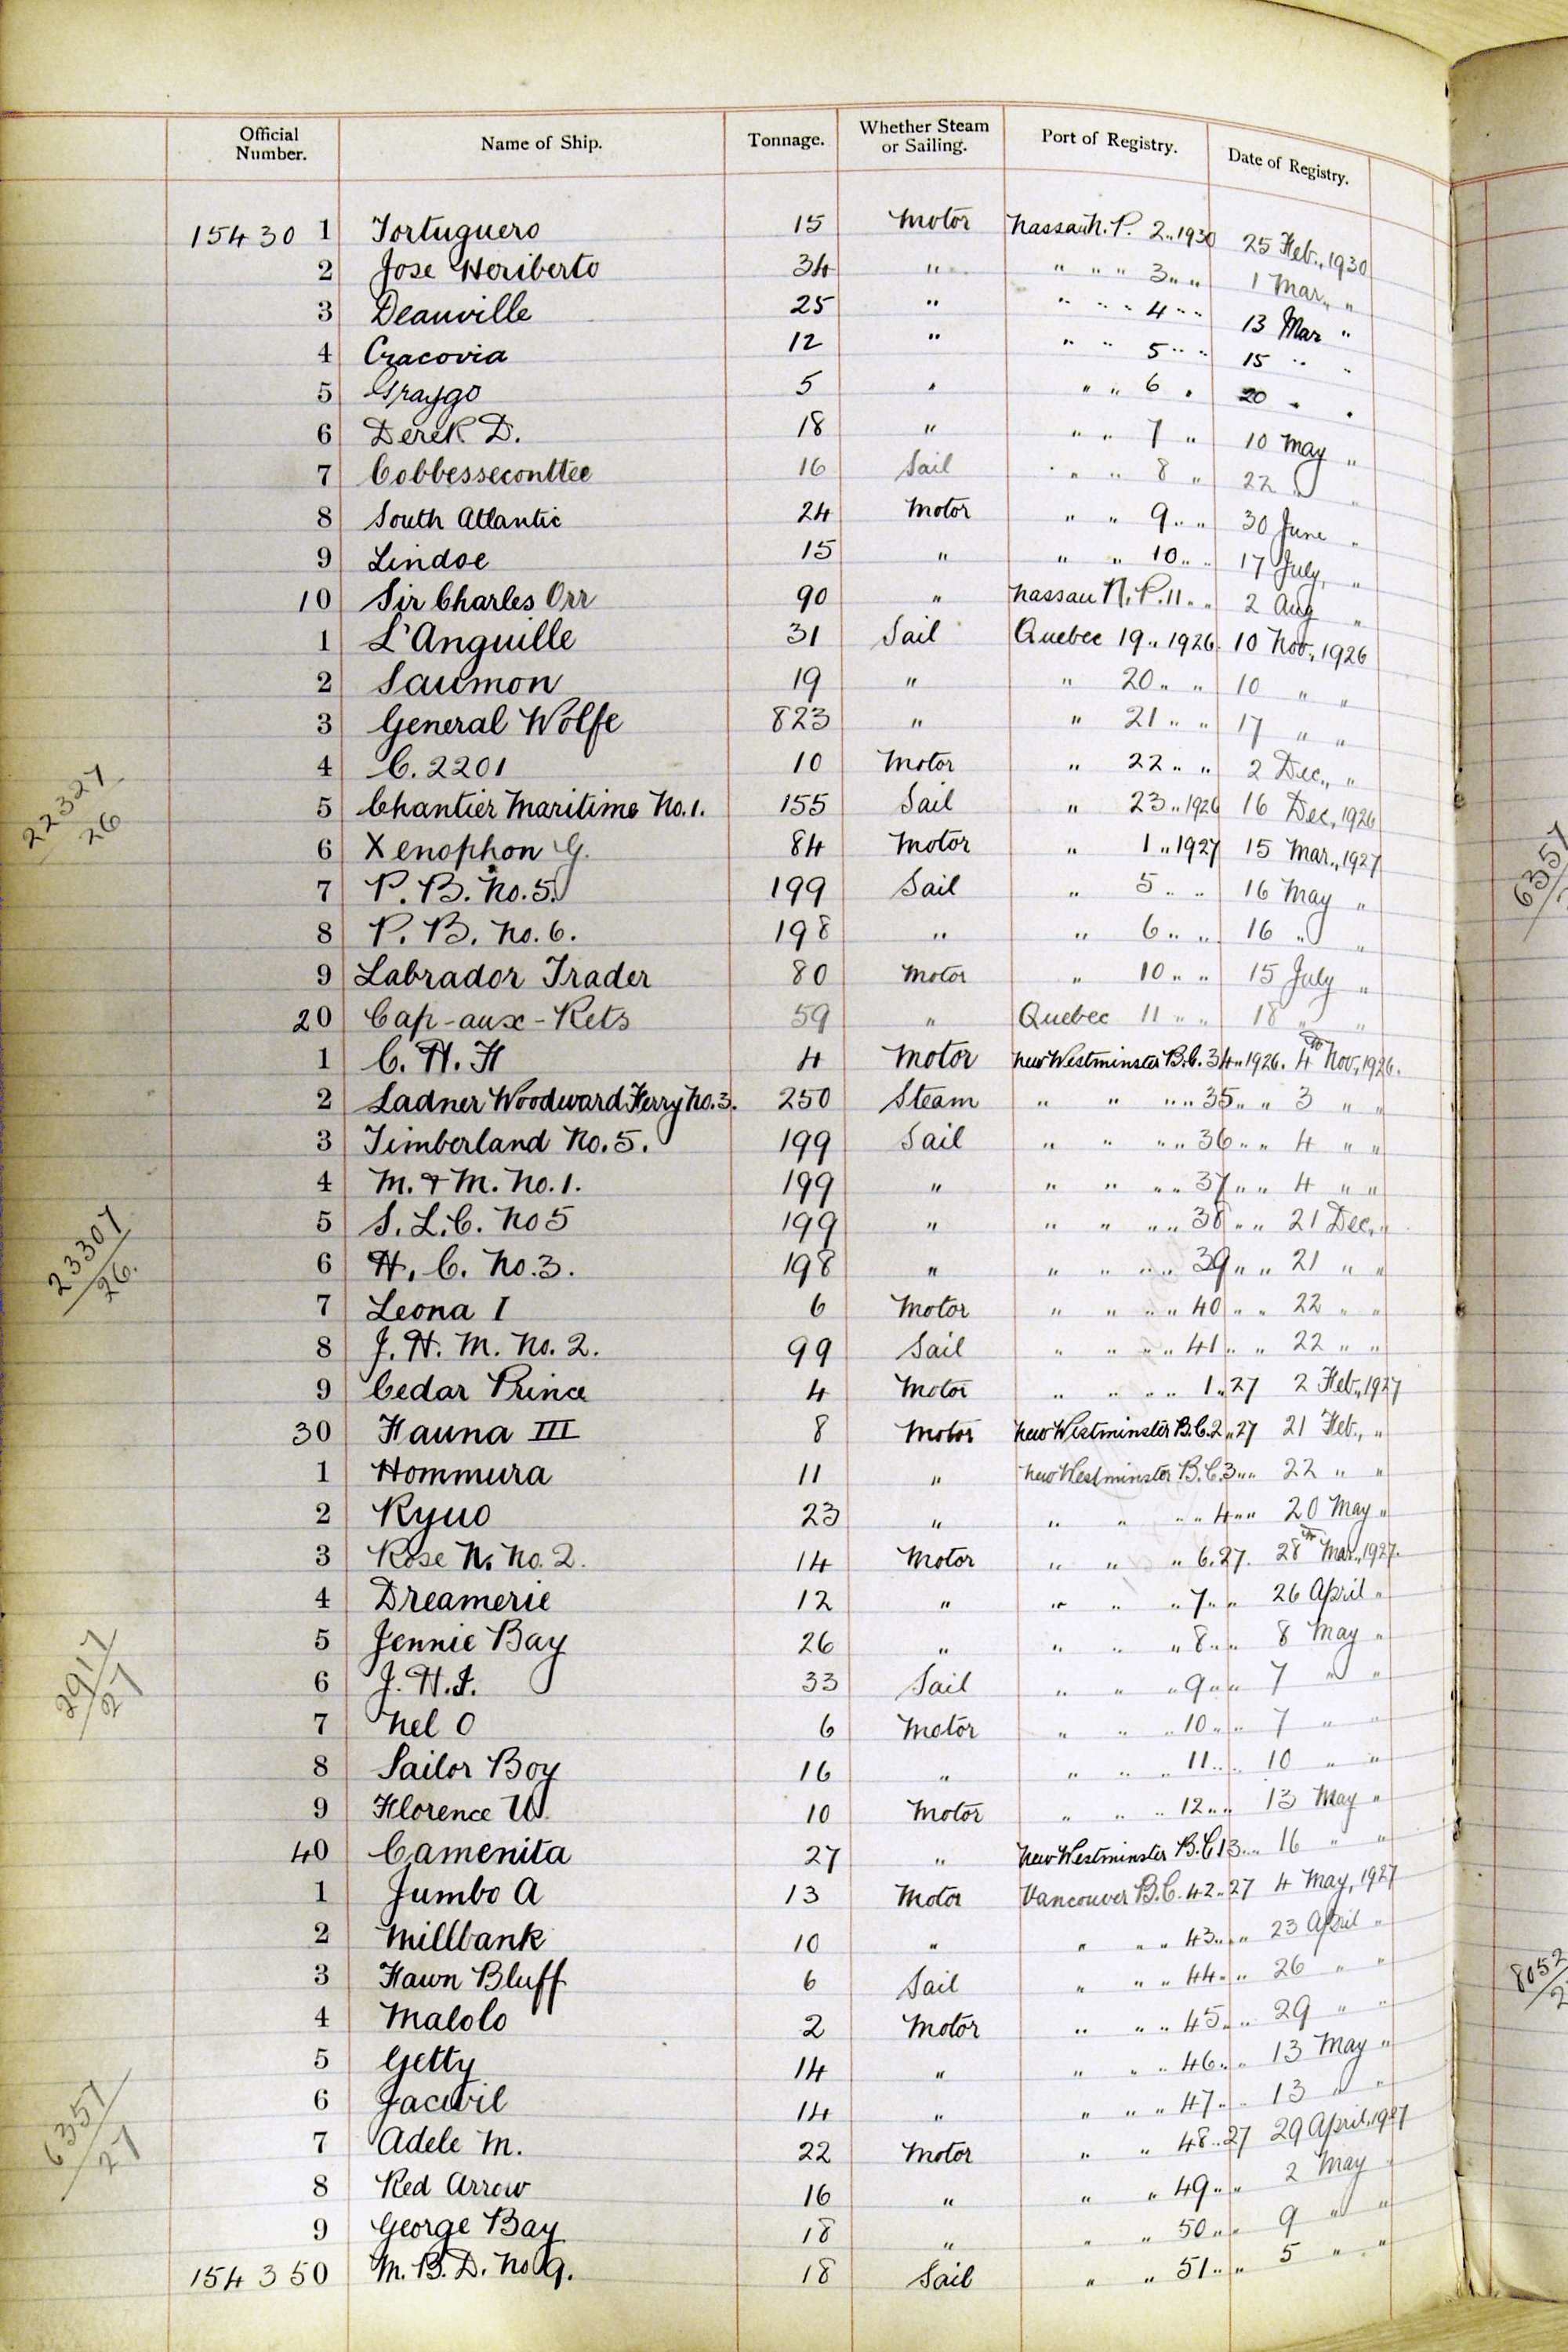 Official Number. Name of Ship. Tonnage. Whether Steam or Sailing. Port of Registry. Date of Registry.
154301 Tortuguero 15 Motor Nassau N.P. 2 " 1930 25 Feb., 1930
2 Jose Heriberto 34 " " " " 3 " " 1 Mar., "
3 Deauville 25 " " " " 4 " " 13 Mar "
4 Cracovia 12 " " " 5 " " 15 " "
5 Graygo 5 " " " 6 " 20 " "
6 Derek D. 18 " " " 7 " 10 May "
7 Cobbesseconttee 16 Sail " " " 8 " 22 " "
8 South Atlantic 24 Motor " " 9 " " 30 June "
9 Lindoe 15 " " " 10 " " 17 July, "
10 Sir Charles Orr 90 " Nassau N.P. 11 " " 2 Aug "
1 L'Anguille 31 Sail Quebec 19 " 1926 10 Nov., 1926
2 Saumon 19 " " 20 " " 10 " "
3 General Wolfe 823 " " 21 " " 17 " "
4 C. 2201 10 Motor " 22 " " 2 Dec., "
22327/26
5 Chantier Maritime No. 1. 155 Sail " 23 " 1926 16 Dec, 1926
6 Xenophon G. 84 Motor " 1 " 1927 15 Mar., 1927
7 P. B. No. 5. 199 Sail " 5 " " 16 May "
6357/
8 P. B. No. 6. 198 " " 6 " " 16 " "
9 Labrador Trader 80 Motor " 10 " " 15 July "
20 Cap-aux-Rets 59 " Quebec 11 " " 18 " "
1 C. H. H 4 Motor New Westminster B.C. 34 " 1926. 4th Nov, 1926.
2 Ladner Woodward Ferry No. 3. 250 Steam " " " " 35 " " 3 " "
3 Timberland No. 5. 199 Sail " " " " 36 " " 4 " "
4 M. & M. No. 1. 199 " " " " " 37 " " 4 " "
5 S. L. C. No 5 199 " " " " " 38 " " 21 Dec, "
23307/26.
6 H. C. No. 3. 198 " " " " " 39 " " 21 " "
7 Leona I 6 Motor " " " " 40 " " 22 " "
8 J. H. M. No. 2. 99 Sail " " " " 41 " " 22 " "
9 Cedar Prince 4 Motor " " " " 1 " 27 2 Feb., 1927
30 Fauna III 8 Motor New Westminster B.C. 2 " 27 21 Feb., "
1 Hommura 11 " New Westminster B.C. 3 " " 22 " "
2 Kyuo 23 " " " " " 4 " " 20 May "
3 Rose N. No. 2. 14 Motor " " " 6. 27. 28th Mar., 1927.
4 Dreamerie 12 " " " " 7 " " 26 April "
5 Jennie Bay 26 " " " " 8 " " 8 May "
2917/27
6 J. H. I. 33 Sail " " " 9 " " 7 " "
7 Nel O 6 Motor " " " 10 " " 7 " "
8 Sailor Boy 16 " " " " 11 " " 10 " "
9 Florence W. 10 Motor " " " 12 " " 13 May "
40 Camenita 27 " New Westminster B.C 13 " " 16 " "
1 Jumbo A 13 Motor Vancouver B.C. 42 " 27 4 May, 1927
2 Millbank 10 " " " " 43 " " 23 April "
3 Fawn Bluff 6 Sail " " " 44 " " 26 " "
8052/
4 Malolo 2 Motor " " " 45 " " 29 " "
5 Getty 14 " " " " 46 " " 13 May "
6 Jacwil 14 " " " " 47 " " 13 " "
6351/27
7 Adele M. 22 Motor " " 48 " 27 29 April, 1927
8 Red Arrow 16 " " " 49 " " 2 May
9 George Bay 18 " " " 50 " " 9 " "
154350 M. B. D. No 9. 18 Sail " " 51 " " 5 " "